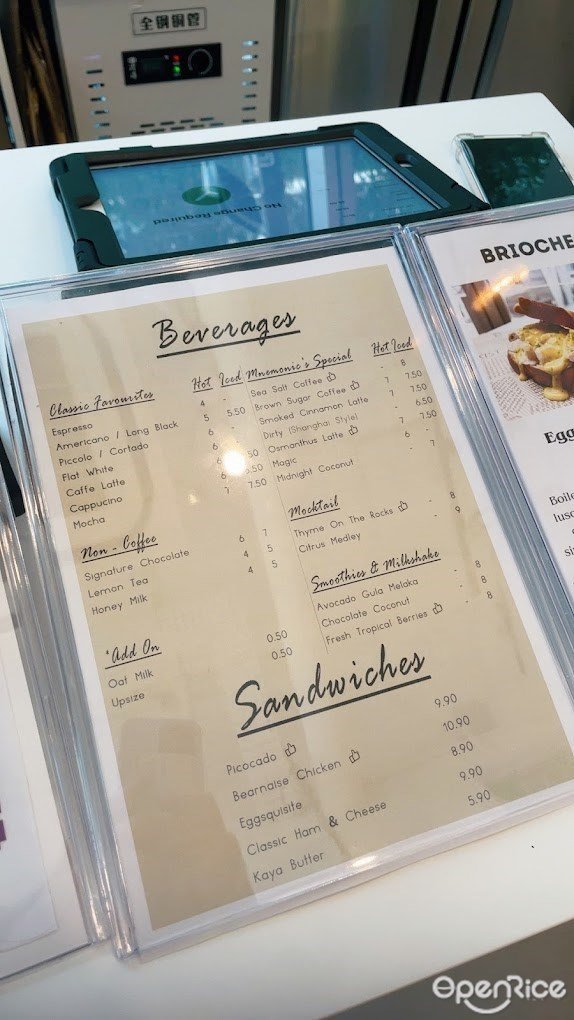 全钢铜管
No Change Required
Beverages
Classic Favourites Hot Iced
Espresso 4 -
Americano / Long Black 5 5.50
Piccolo / Cortado 6 -
Flat White 6
Caffe Latte
Cappucino
Mocha 7 7.50
Non - Coffee
Signature Chocolate 6 7
Lemon Tea 4 5
Honey Milk 4 5
*Add On
Oat Milk 0.50
Upsize 0.50
Mnemonic's Special Hot Iced
Sea Salt Coffee - 8
Brown Sugar Coffee 7 7.50
Smoked Cinnamon Latte 7 7.50
Dirty (Shanghai Style) - 6.50
Osmanthus Latte 7 7.50
Magic 6 -
Midnight Coconut - 7
Mocktail
Thyme On The Rocks - 8
Citrus Medley - 9
Smoothies & Milkshake
Avocado Gula Melaka - 8
Chocolate Coconut - 8
Fresh Tropical Berries - 8
Sandwiches
Picocado 9.90
Bearnaise Chicken 10.90
Eggsquisite 8.90
Classic Ham & Cheese 9.90
Kaya Butter 5.90
BRIOCHE
Egg
OpenRice